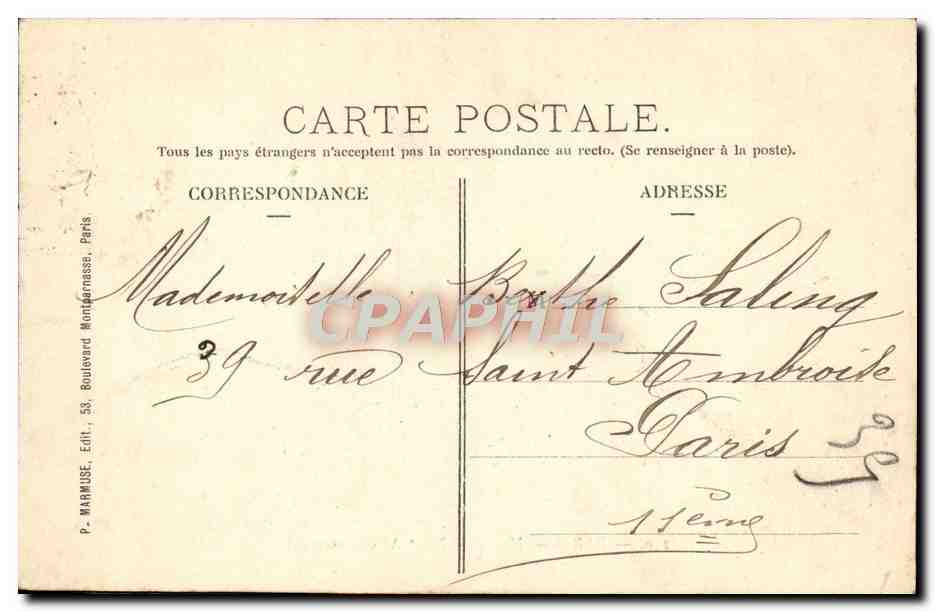 CARTE POSTALE.
Tous les pays étrangers n'acceptent pas la correspondance au recto. (Se renseigner à la poste).
CORRESPONDANCE
ADRESSE
Mademoiselle Berthe Saling
39 rue Saint Ambroise
Paris
11ème
39
P. MARMUSE, Edit., 53, Boulevard Montparnasse, Paris.
CPAPHIL
1